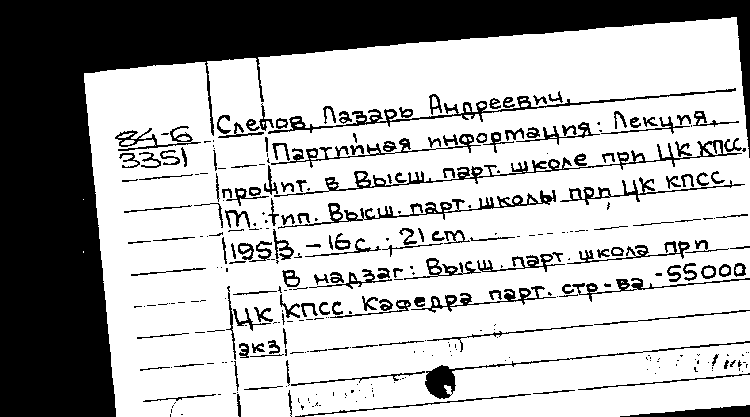 84-6
3351
Слепов, Лазарь Андреевич.
Партийная информация: Лекция,
прочит. в Высш. парт. школе при ЦК КПСС.
М.: тип. Высш. парт. школы при ЦК КПСС,
1953. - 16 с.; 21 см.
В надзаг: Высш. парт. школа при
ЦК КПСС. Кафедра парт. стр-ва. - 55000
экз